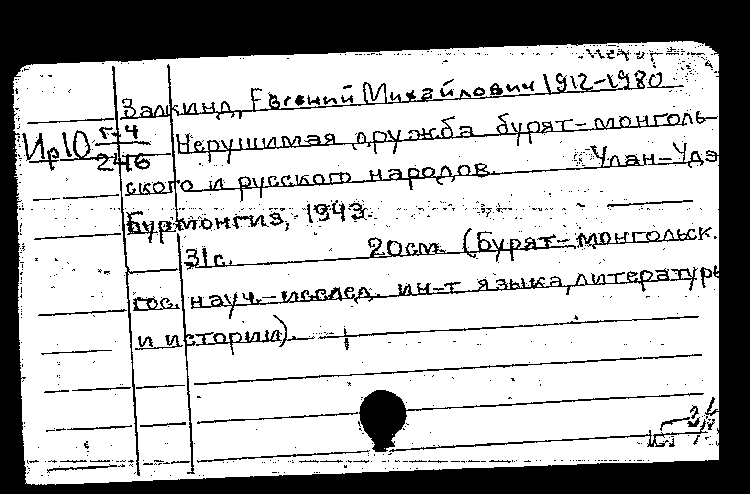 Залкинд, Евгений Михайлович 1912-1980
Ир10 г-4/246
Нерушимая дружба бурят-монголь-
ского и русского народов. Улан-Удэ
Бурмонгиз, 1943.
31с. 20см. (Бурят-монгольск.
гос. науч.-исслед. ин-т языка, литературы
и истории).